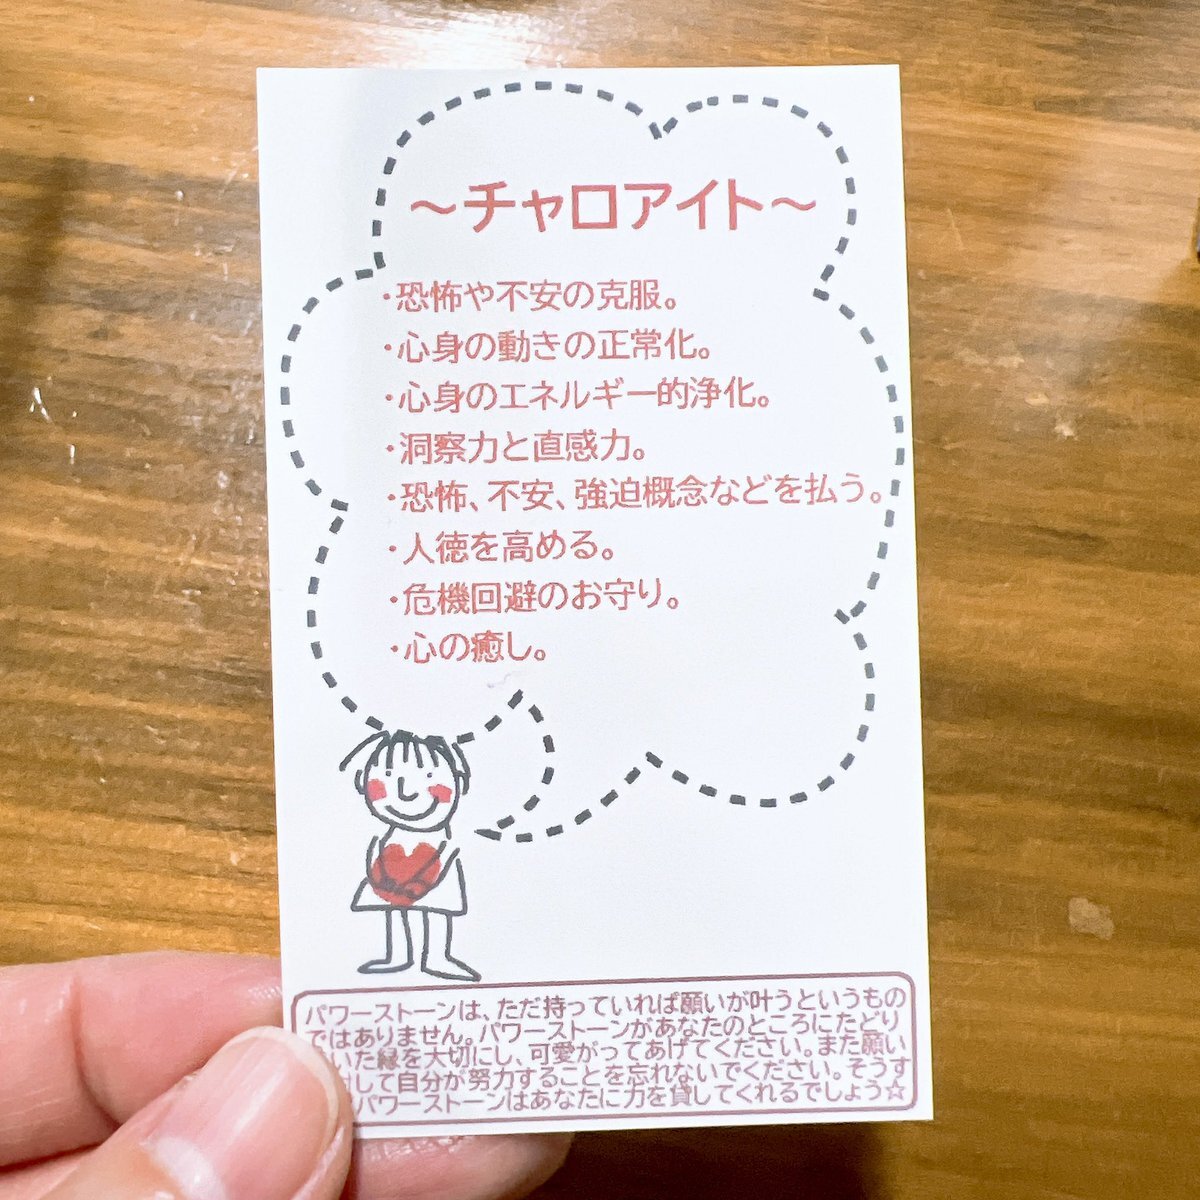 ～チャロアイト～
・恐怖や不安の克服。
・心身の動きの正常化。
・心身のエネルギー的浄化。
・洞察力と直感力。
・恐怖、不安、強迫概念などを払う。
・人徳を高める。
・危機回避のお守り。
・心の癒し。
パワーストーンは、ただ持っていれば願いが叶うというもの
ではありません。パワーストーンがあなたのところにたどり
いた縁を大切にし、可愛がってあげてください。また願い
して自分が努力することを忘れないでください。そうす
パワーストーンはあなたに力を貸してくれるでしょう☆